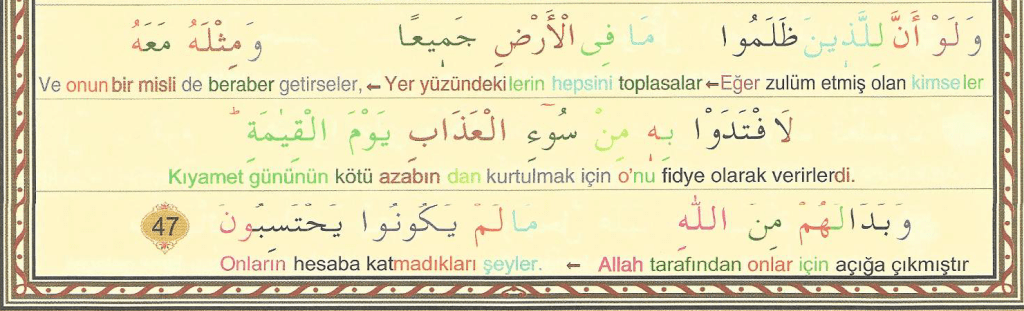 وَلَوْ أَنَّ لِلَّذِينَ ظَلَمُوا مَا فِى الْأَرْضِ جَمِيعًا وَمِثْلَهُ مَعَهُ
Ve onun bir misli de beraber getirseler, ← Yer yüzündekilerin hepsini toplasalar ← Eğer zulüm etmiş olan kimseler
لَافْتَدَوْا بِهِ مِنْ سُوٓءِ الْعَذَابِ يَوْمَ الْقِيٰمَةِ ۜ
Kıyamet gününün kötü azabın dan kurtulmak için o'nu fidye olarak verirlerdi.
وَبَدَالَهُمْ مِنَ اللّٰهِ مَالَمْ يَكُونُوا يَحْتَسِبُونَ 47
Onların hesaba katmadıkları şeyler. ← Allah tarafından onlar için açığa çıkmıştır